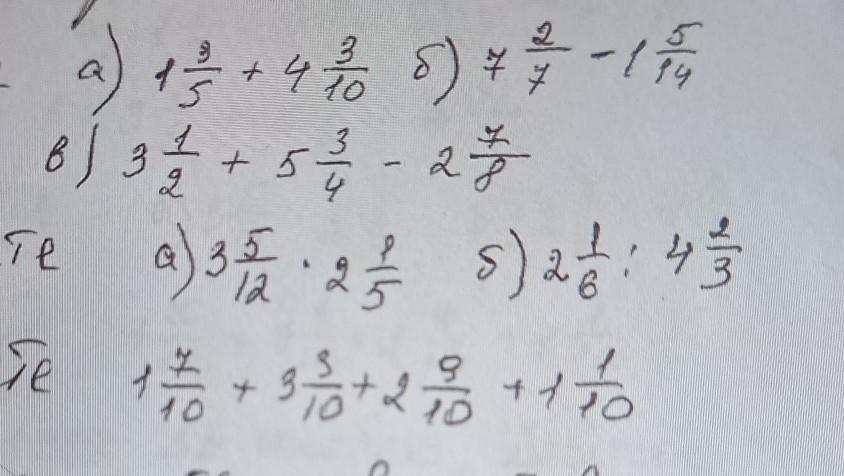 а) 1 3/5 + 4 3/10 б) 7 2/7 - 1 5/14
в) 3 1/2 + 5 3/4 - 2 7/8
те а) 3 5/12 · 2 1/5 б) 2 1/6 : 4 2/3
те 1 7/10 + 3 3/10 + 2 9/10 + 1 1/10